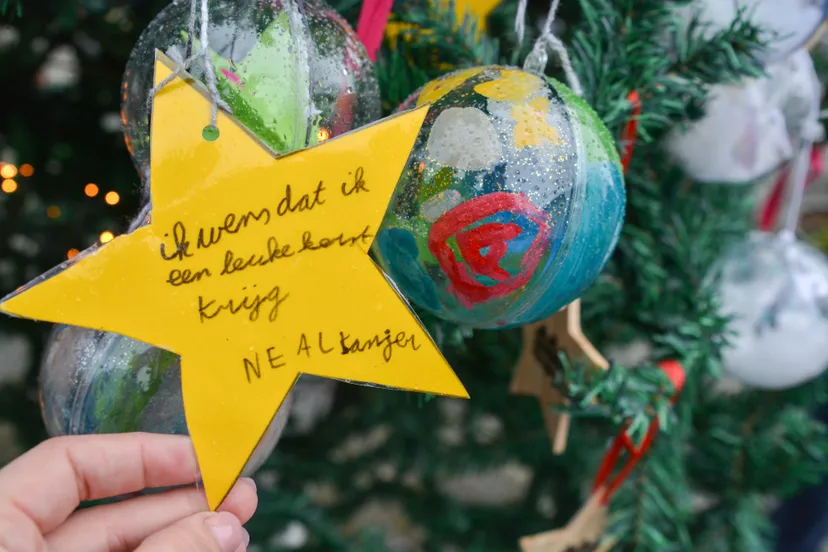 ik wens dat ik
een leuke kerst
krijg
NEALkanjer